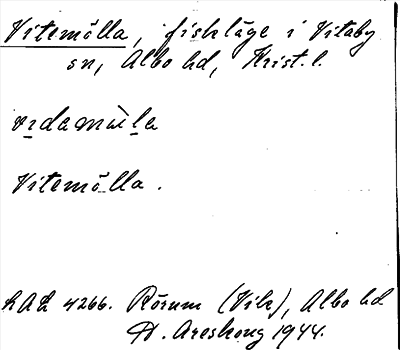 Vitemölla, fiskläge i Vitaby
sn, Albo hd, Krist. l.
vidamöla
Vitemölla.
LAL 4266. Rörum (Vik), Albo hd
A. Areskoug 1944.